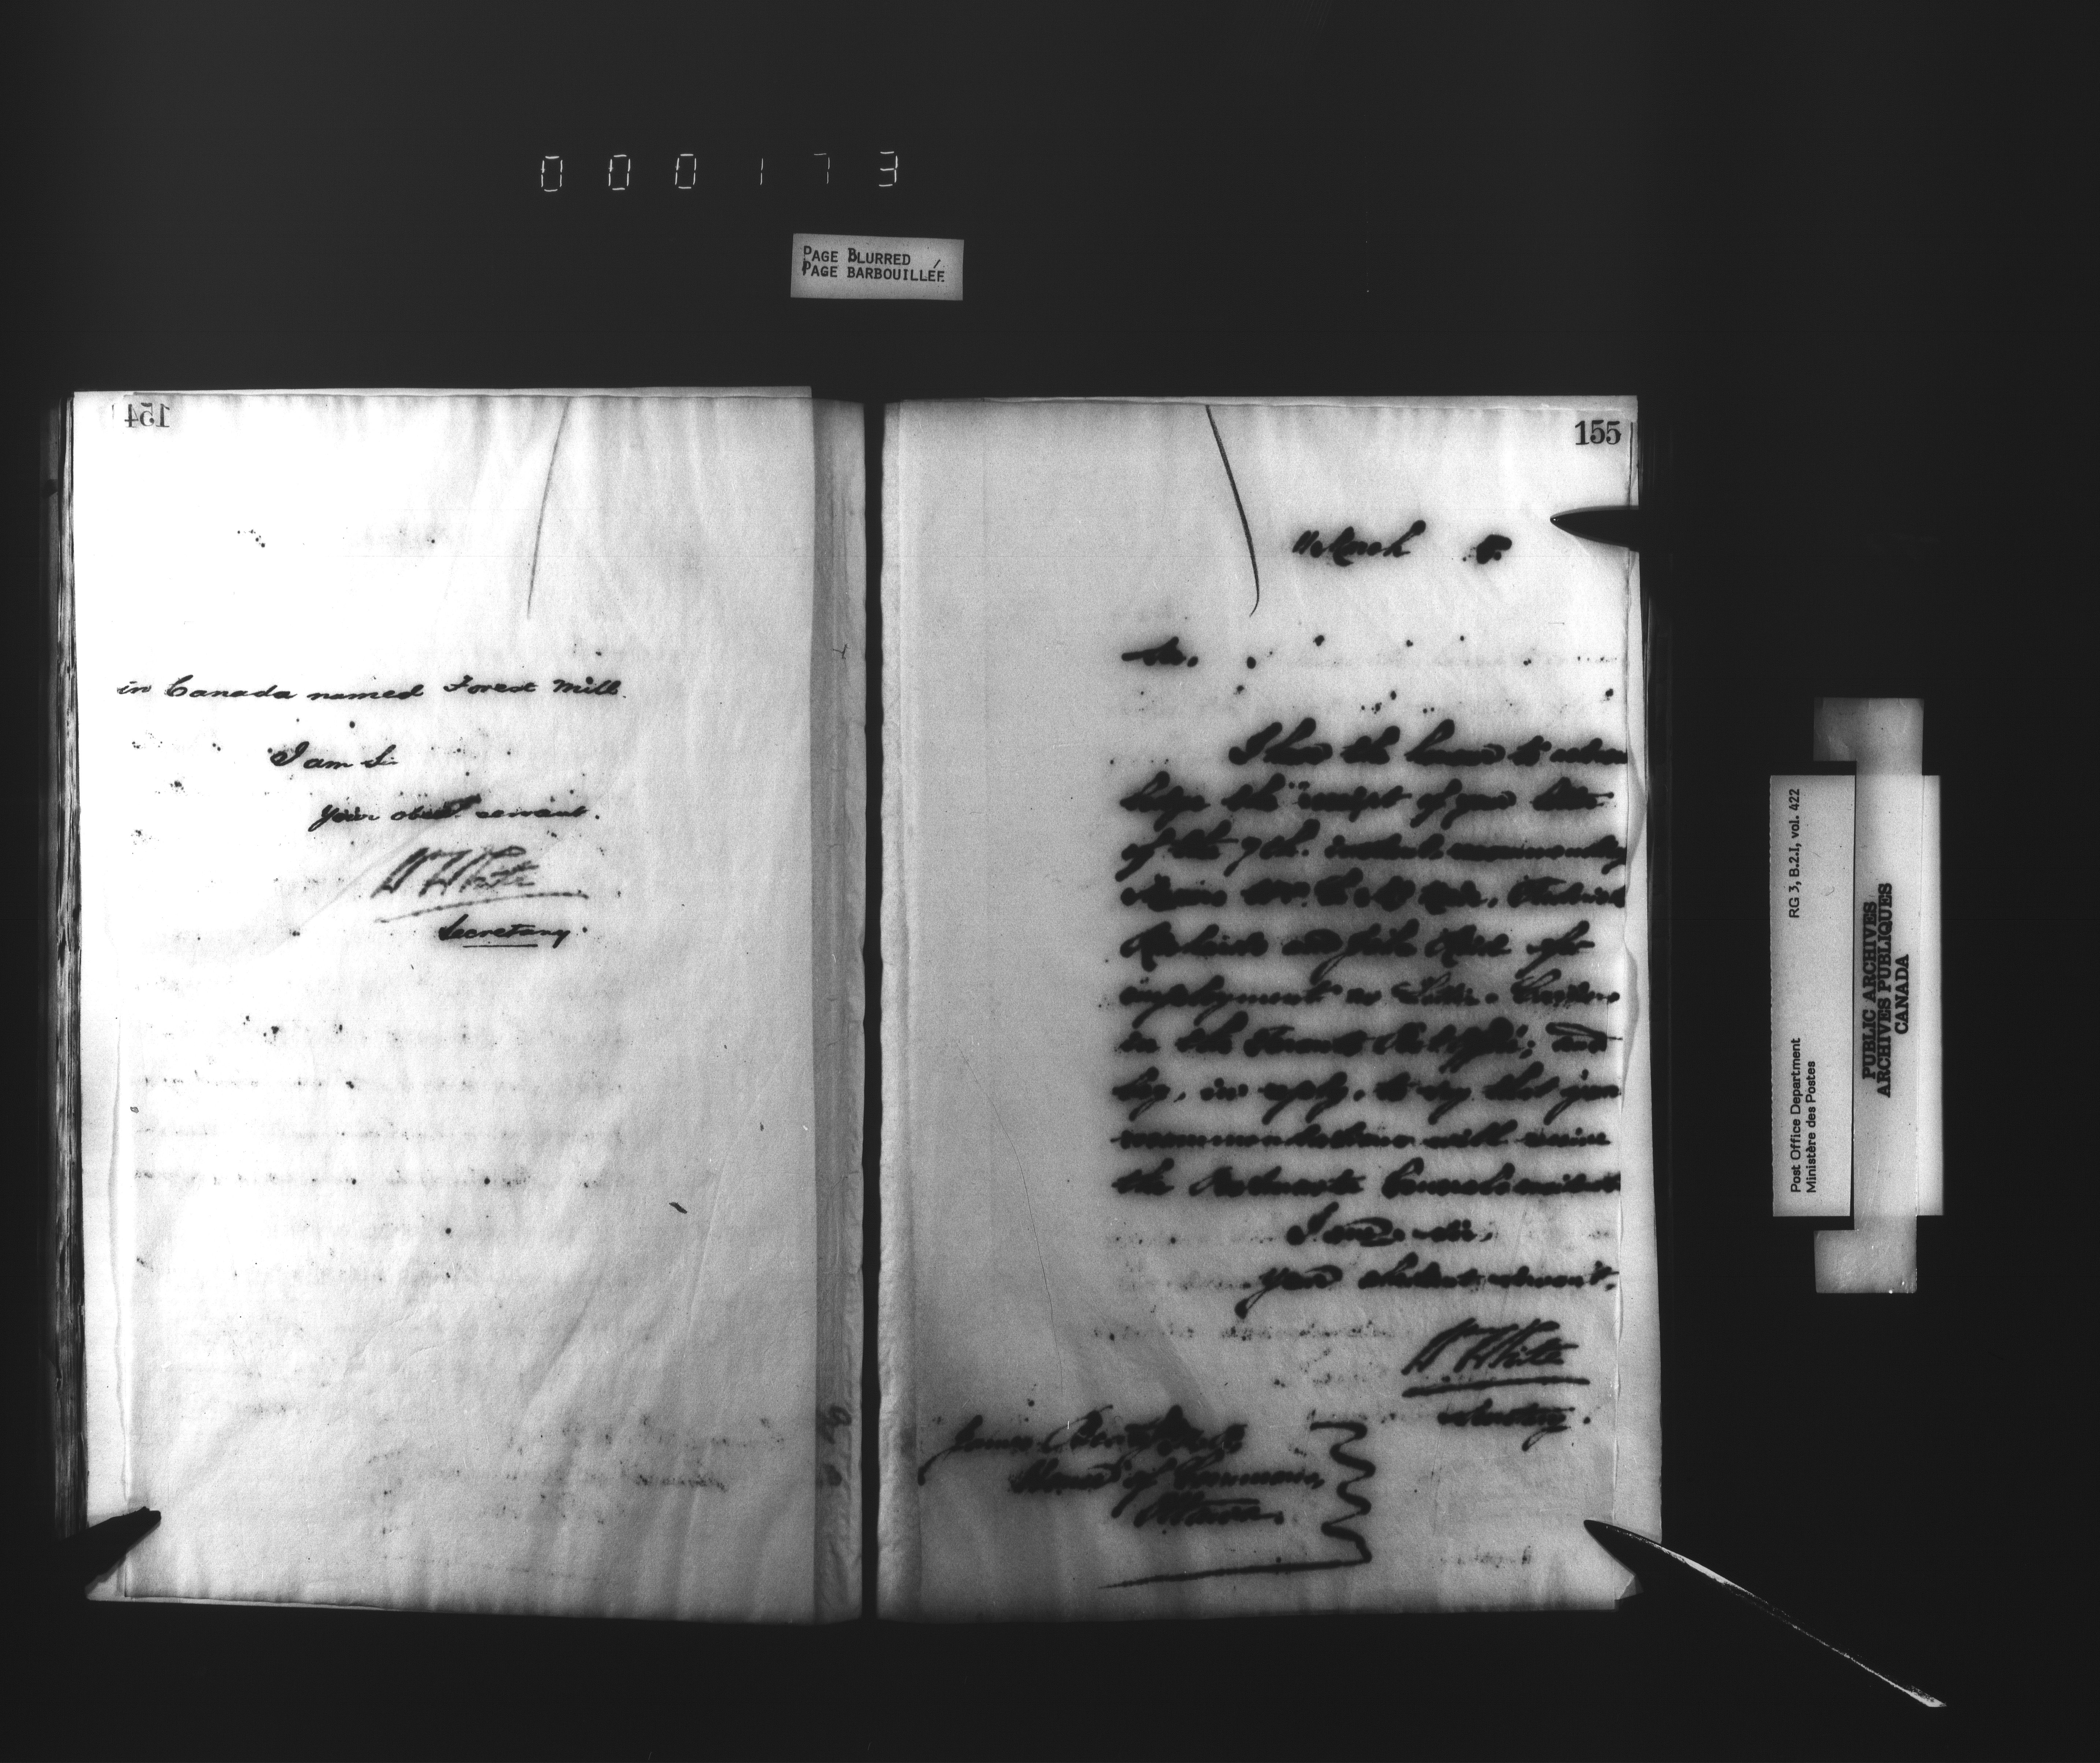 000173
PAGE BLURRED
PAGE BARBOUILLÉE
154
in Canada named Forest Mill.
I am Sir
Your obedt. servant.
W White
Secretary.
155
11 March
Sir.
I have the honor to acknow
ledge the receipt of your letter
of the 7th. instant recommending
Messrs
and John
employment as Letter-Carriers
in the Toronto Post Office; and
beg, in reply, to say that your
recommendations will receive
the Postmaster General's
I am, Sir,
Your obedient servant.
W White
Secretary.
James
House of Commons,
Ottawa.
Post Office Department RG 3, B.2.I, vol. 422
Ministère des Postes
PUBLIC ARCHIVES
ARCHIVES PUBLIQUES
CANADA